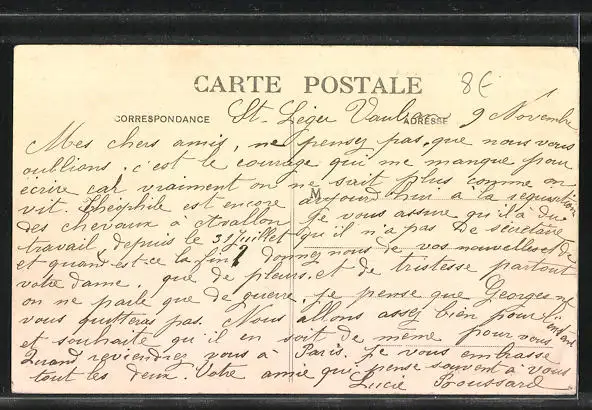 CARTE POSTALE
8€
CORRESPONDANCE
ADRESSE
St-Léger Vauban 9 Novembre
Mes chers amis, ne pensez pas que nous vous
oublions, c'est le courage qui me manque pour
écrire car vraiment on ne sait plus comme on
M
vit. Théophile est encore aujourd'hui à la réquisition
des chevaux à Avallon je vous assure qu'il a du
travail depuis le 31 Juillet qu'il n'a pas de secrétaire
et quand est-ce la fin? donnez nous de vos nouvelles et de
votre dame. que de pleurs et de tristesse partout
on ne parle que de guerre, je pense que Georges ne
vous quittera pas. Nous allons assez bien pour
et souhaite qu'il en soit de même pour vous
Quand reviendrez vous à Paris. Je vous embrasse
tout les deux. Votre amie qui pense souvent à vous
Lucie Roussard